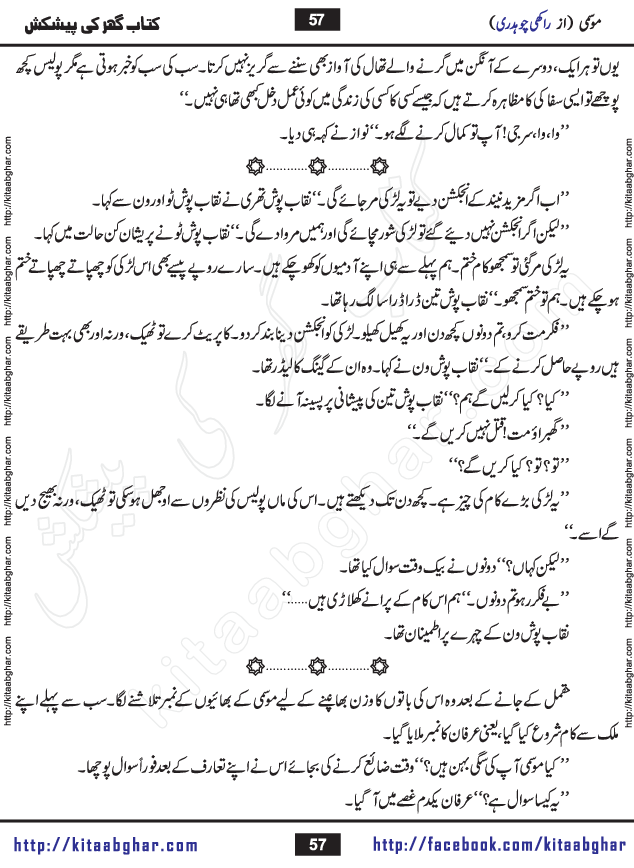 موسمی (از راکھی چوہدری)
57
کتاب گھر کی پیشکش
یوں تو ہر ایک، دوسرے کے آنگن میں گرنے والے تھال کی آواز بھی سننے سے گریز نہیں کرتا۔ سب کی سب کو خبر ہوتی ہے مگر پولیس کچھ
پوچھے تو ایسی سفاکی کا مظاہرہ کرتے ہیں کہ جیسے کسی کا کسی کی زندگی میں کوئی عمل دخل کبھی تھا ہی نہیں۔‘‘
’’وا، وا، سر جی! آپ تو کمال کرنے لگے ہو۔‘‘ نواز نے کہہ ہی دیا۔
’’اب اگر مزید نیند کے انجکشن دیے تو یہ لڑکی مر جائے گی۔‘‘ نقاب پوش تھری نے نقاب پوش ٹو اور ون سے کہا۔
’’لیکن اگر انجکشن نہیں دیئے گئے تو لڑکی شور مچائے گی اور ہمیں مروا دے گی۔‘‘ نقاب پوش ٹو نے پریشان کن حالت میں کہا۔
یہ لڑکی مر گئی تو سمجھو کام ختم۔ ہم پہلے سے ہی اپنے آدمیوں کو کھو چکے ہیں۔ سارے روپے پیسے بھی اس لڑکی کو چھپاتے چھپاتے ختم
ہو چکے ہیں۔ ہم تو ختم سمجھو۔‘‘ نقاب پوش تین ڈرا ڈرا سا لگ رہا تھا۔
’’فکر مت کرو، تم دونوں کچھ دن اور یہ کھیل کھیلو۔ لڑکی کو انجکشن دینا بند کر دو۔ کاپریٹ کرے تو ٹھیک، ورنہ اور بھی بہت طریقے
ہیں روپے حاصل کرنے کے۔‘‘ نقاب پوش ون نے کہا۔ وہ ان کے گینگ کا لیڈر تھا۔
’’کیا؟ کیا کر لیں گے ہم؟‘‘ نقاب پوش تین کی پیشانی پر پسینہ آنے لگا۔
’’گھبراؤ مت! قتل نہیں کریں گے۔‘‘
’’تو؟ تو؟ کیا کریں گے؟‘‘
’’یہ لڑکی بڑے کام کی چیز ہے۔ کچھ دن تک دیکھتے ہیں۔ اس کی ماں پولیس کی نظروں سے اوجھل ہو سکی تو ٹھیک، ورنہ بھیج دیں
گے اسے۔‘‘
’’لیکن کہاں؟‘‘ دونوں نے بیک وقت سوال کیا تھا۔
’’بے فکر رہو تم دونوں۔‘‘ ہم اس کام کے پرانے کھلاڑی ہیں......‘‘
نقاب پوش ون کے چہرے پر اطمینان تھا۔
کے جانے کے بعد وہ اس کی باتوں کا وزن بھانپنے کے لیے موسمی کے بھائیوں کے نمبر تلاشنے لگا۔ سب سے پہلے اپنے
ملک سے کام شروع کیا گیا، یعنی عرفان کا نمبر ملایا گیا۔
’’کیا موسمی آپ کی سگی بہن ہیں؟‘‘ وقت ضائع کرنے کی بجائے اس نے اپنے تعارف کے بعد فوراً سوال پوچھا۔
’’یہ کیسا سوال ہے؟‘‘ عرفان یکدم غصے میں آ گیا۔
http://kitaabghar.com
57
http://facebook.com/kitaabghar
http://kitaabghar.com http://kitaabghar.com http://kitaabghar.com http://kitaabghar.com http://kitaabghar.com http://kitaabghar.com
http://kitaabghar.com http://kitaabghar.com http://kitaabghar.com http://kitaabghar.com http://kitaabghar.com http://kitaabghar.com
کتاب گھر کی پیشکش
kitaabghar.com